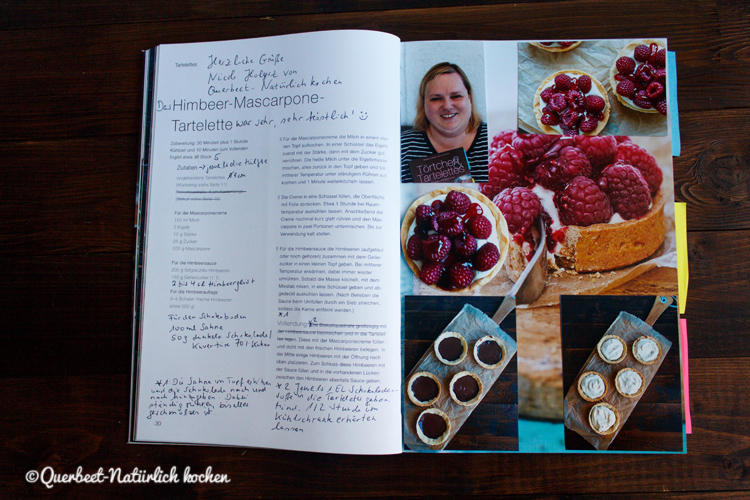 Tartelettes
Herzliche Grüße
Nicole Holzet von
Querbeet-Natürlich kochen
Das Himbeer-Mascarpone-
Tartelette war sehr, sehr köstlich!
Zubereitung: 30 Minuten plus 1 Stunde
Kühlzeit und 10 Minuten zum
Ergibt etwa 36 Stück 5
Zutaten → jeweils die Hälfte
Für die Mascarponecreme
150 ml Milch
3 Eigelb
10 g Stärke
25 g Zucker
200 g Mascarpone
Für die Himbeersauce
200 g tiefgekühlte Himbeeren
2 bis 4 cl Himbeergeist
Für die Himbeerauflage
3-4 Schalen frische Himbeeren
(etwa 500 g)
Für den Schokoboden
100 ml Sahne
50 g dunkle Schokolade/
Kuvertüre 70% Kakao
*1 Die Sahne im Topf erhitzen
und die Schokolade nach und
nach hinzugeben. Dabei
ständig rühren, bis alles
geschmolzen ist
30
Für die Mascarponecreme die Milch in einem
Topf aufkochen. In einer Schüssel das Eigelb
mit der Stärke, dann mit dem Zucker
Die heiße Milch unter die Eigelbmasse
mischen, alles zurück in den Topf geben und
mittlerer Temperatur unter ständigem Rühren
kochen und 1 Minute weiterköcheln lassen.
Die Creme in eine Schüssel füllen, die Oberfläche
mit Folie abdecken. Etwa 1 Stunde bei Raum-
temperatur auskühlen lassen. Anschließend die
Creme nochmal kurz glatt rühren und den Mas-
carpone in zwei Portionen unterrühren. Bis zur
Verwendung kalt stellen.
Für die Himbeersauce die Himbeeren (aufgetaut
oder noch gefroren) zusammen mit dem Gelier-
zucker in einen kleinen Topf geben. Bei mittlerer
Temperatur erwärmen, dabei immer wieder
umrühren. Sobald die Masse köchelt, mit dem
Mixstab mixen, in eine Schüssel geben und ab-
gedeckt auskühlen lassen. (Nach Belieben die
Sauce beim Umfüllen durch ein Sieb streichen,
sodass die Kerne entfernt werden.)
*1
*2
Vollendung:
legen. Diese mit der Mascarponecreme füllen
und dicht mit den frischen Himbeeren belegen. In
die Mitte einige Himbeeren mit der Öffnung nach
oben platzieren. Zum Schluss diese Himbeeren mit
der Sauce füllen und in die vorhandenen Lücken
zwischen den Himbeeren ebenfalls Sauce geben.
*2 Jeweils 1 EL Schokoladen-
soße in die Tartelettes geben
und 1/2 Stunde im
Kühlschrank erhärten
lassen
Törtchen
Tartelettes
©Querbeet-Natürlich kochen